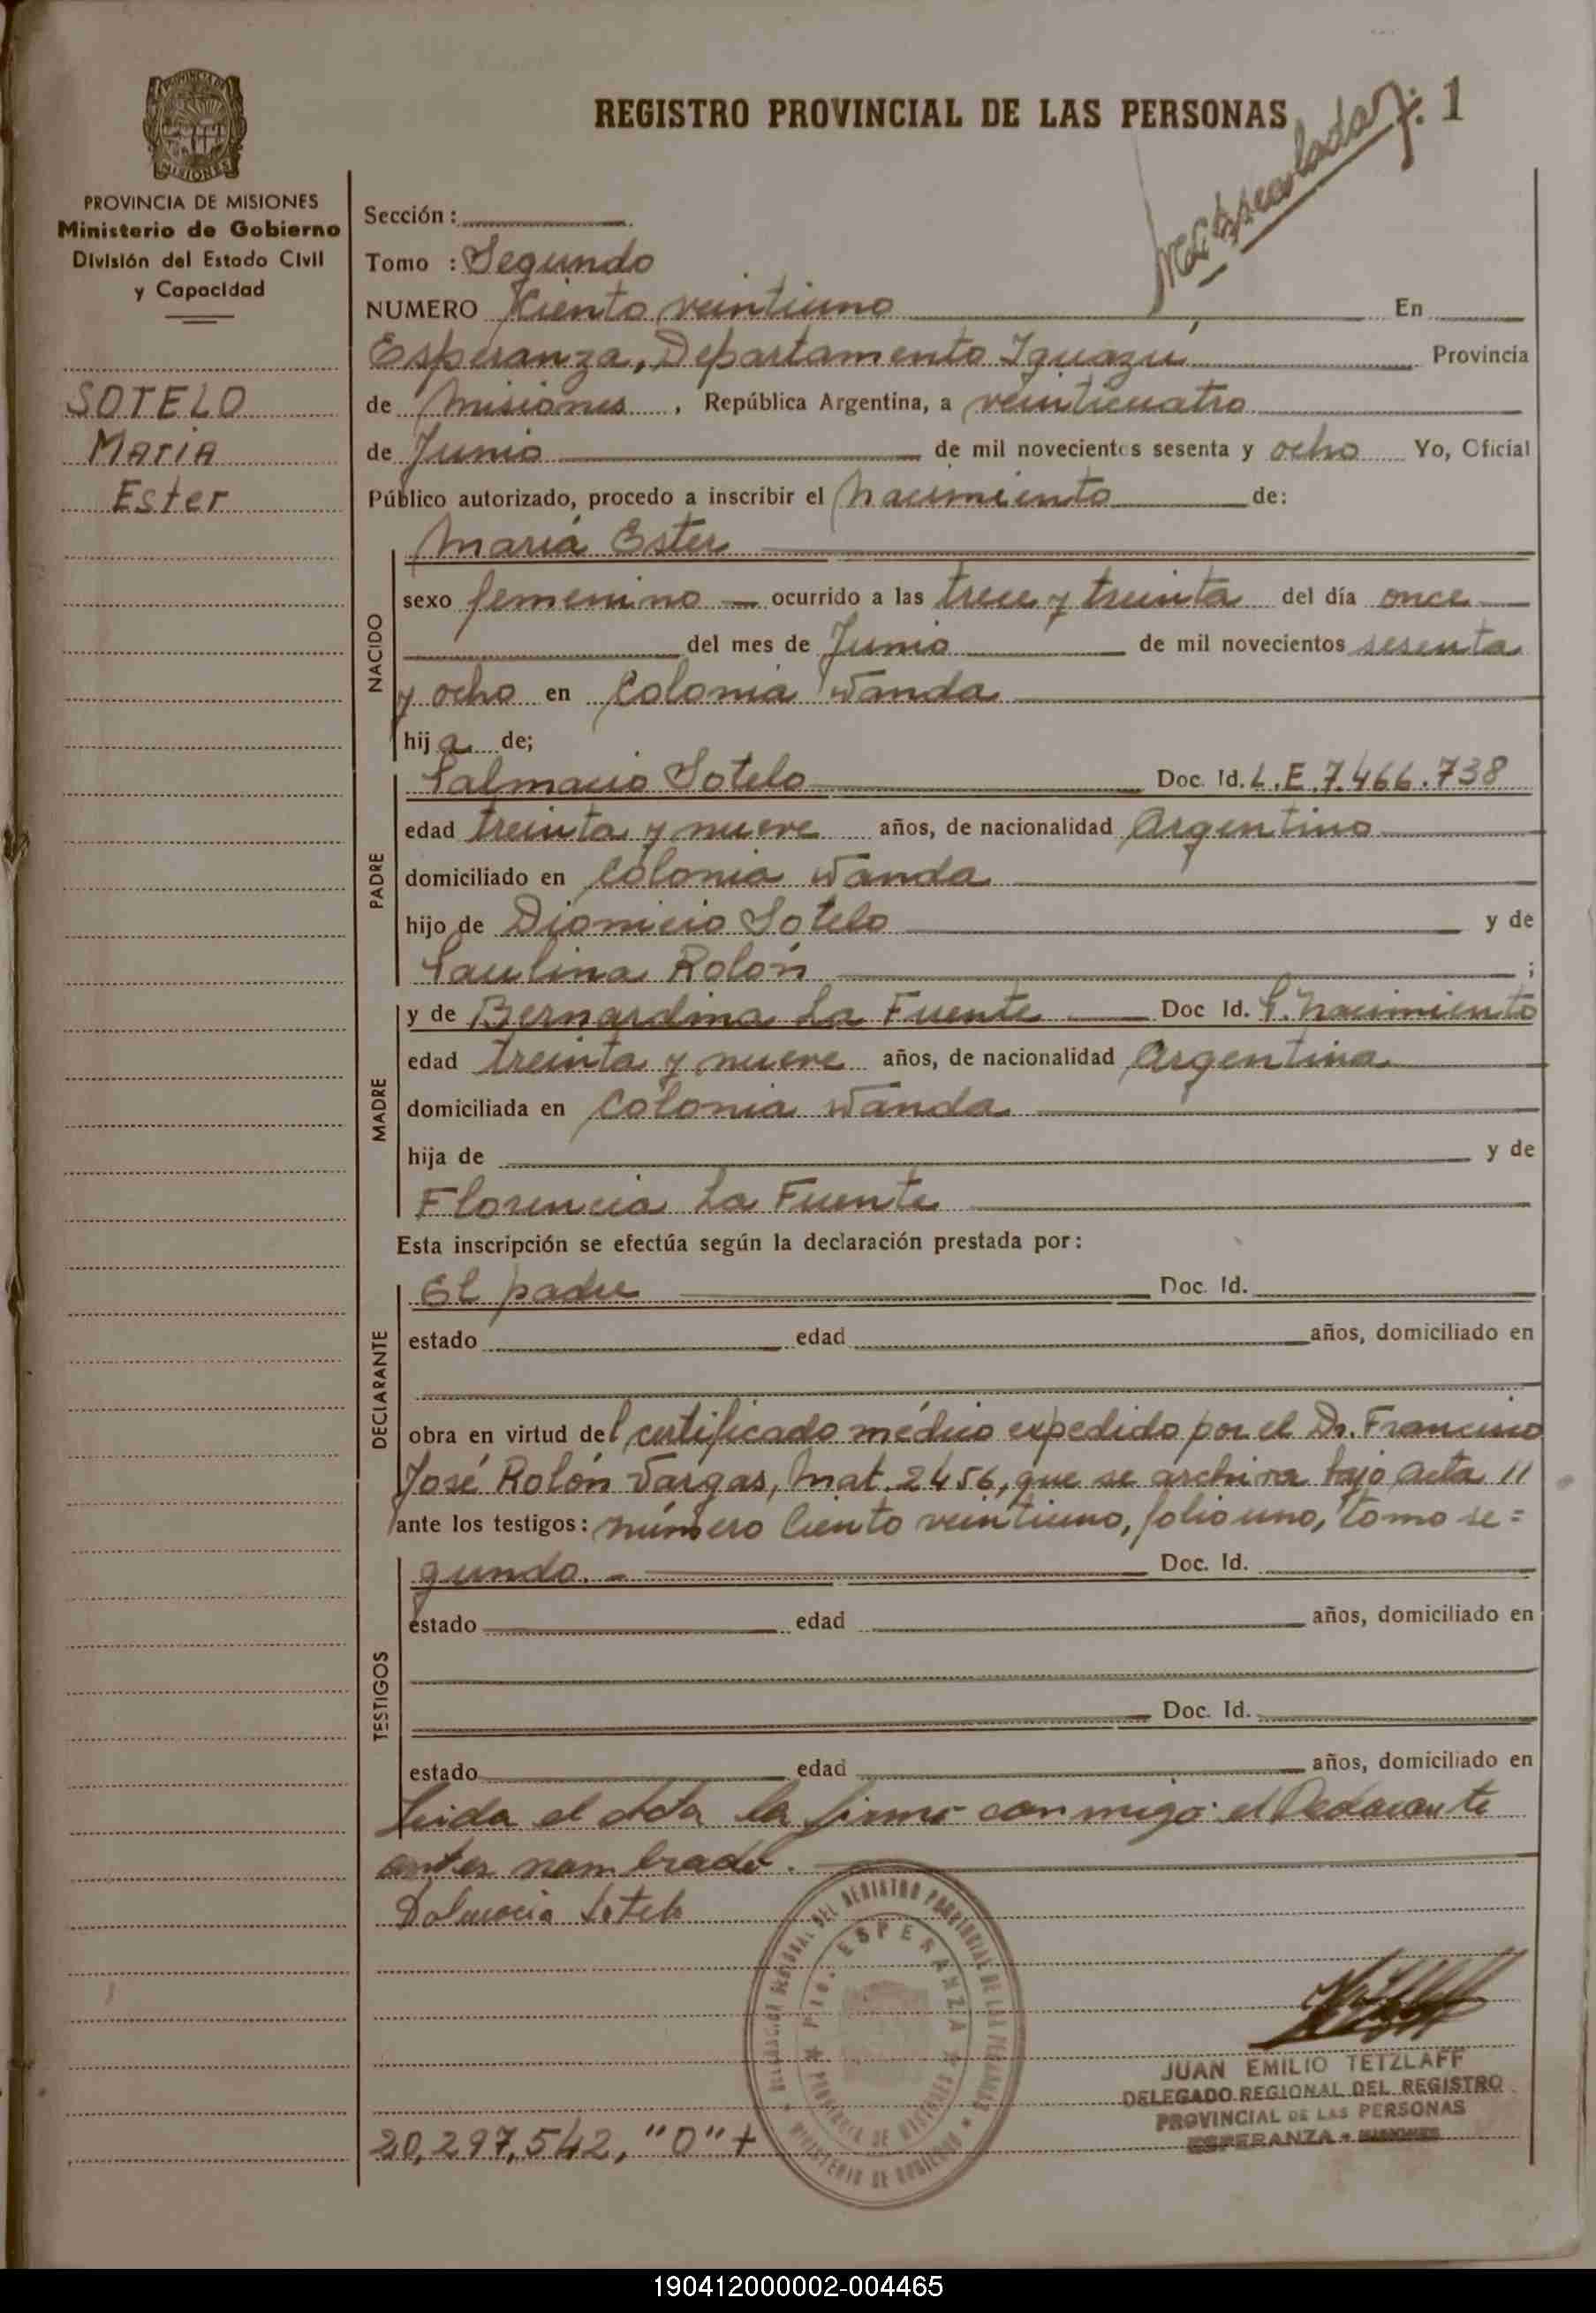 REGISTRO PROVINCIAL DE LAS PERSONAS
f: 1
PROVINCIA DE MISIONES
Ministerio de Gobierno
División del Estado Civil
y Capacidad
SOTELO
Maria
Ester
Sección :
Tomo : Segundo
NUMERO Ciento veintiuno En
Esperanza, Departamento Iguazú Provincia
de Misiones, República Argentina, a veinticuatro
de Junio de mil novecientos sesenta y ocho Yo, Oficial
Público autorizado, procedo a inscribir el nacimiento de:
NACIDO
María Ester
sexo femenino — ocurrido a las trece y treinta del día once
del mes de Junio de mil novecientos sesenta
y ocho en Colonia Wanda
hija de;
PADRE
Dalmacio Sotelo Doc. Id. L.E. 7.466.738
edad treinta y nueve años, de nacionalidad Argentino
domiciliado en Colonia Wanda
hijo de Dionicio Sotelo y de
Paulina Rolón ;
MADRE
y de Bernardina La Fuente Doc Id. P. nacimiento
edad treinta y nueve años, de nacionalidad Argentina
domiciliada en Colonia Wanda
hija de y de
Florencia La Fuente
Esta inscripción se efectúa según la declaración prestada por:
DECLARANTE
El padre Doc. Id.
estado edad años, domiciliado en
obra en virtud del certificado médico expedido por el Dr. Francisco
José Rolón Vargas, Mat. 2456, que se archiva bajo acta //
ante los testigos: número Ciento veintiuno, folio uno, tomo se=
TESTIGOS
gundo. - Doc. Id.
estado edad años, domiciliado en
Doc. Id.
estado edad años, domiciliado en
Leida el Acta la firmó conmigo el Declarante
antes nombrado.
Dalmacio Sotelo
DELEGACION REGIONAL DEL REGISTRO PROVINCIAL DE LAS PERSONAS
PTO. ESPERANZA
PROVINCIA DE MISIONES
MINISTERIO DE GOBIERNO
JUAN EMILIO TETZLAFF
DELEGADO REGIONAL DEL REGISTRO
PROVINCIAL DE LAS PERSONAS
ESPERANZA - MISIONES
20,297,542, "O" +
190412000002-004465